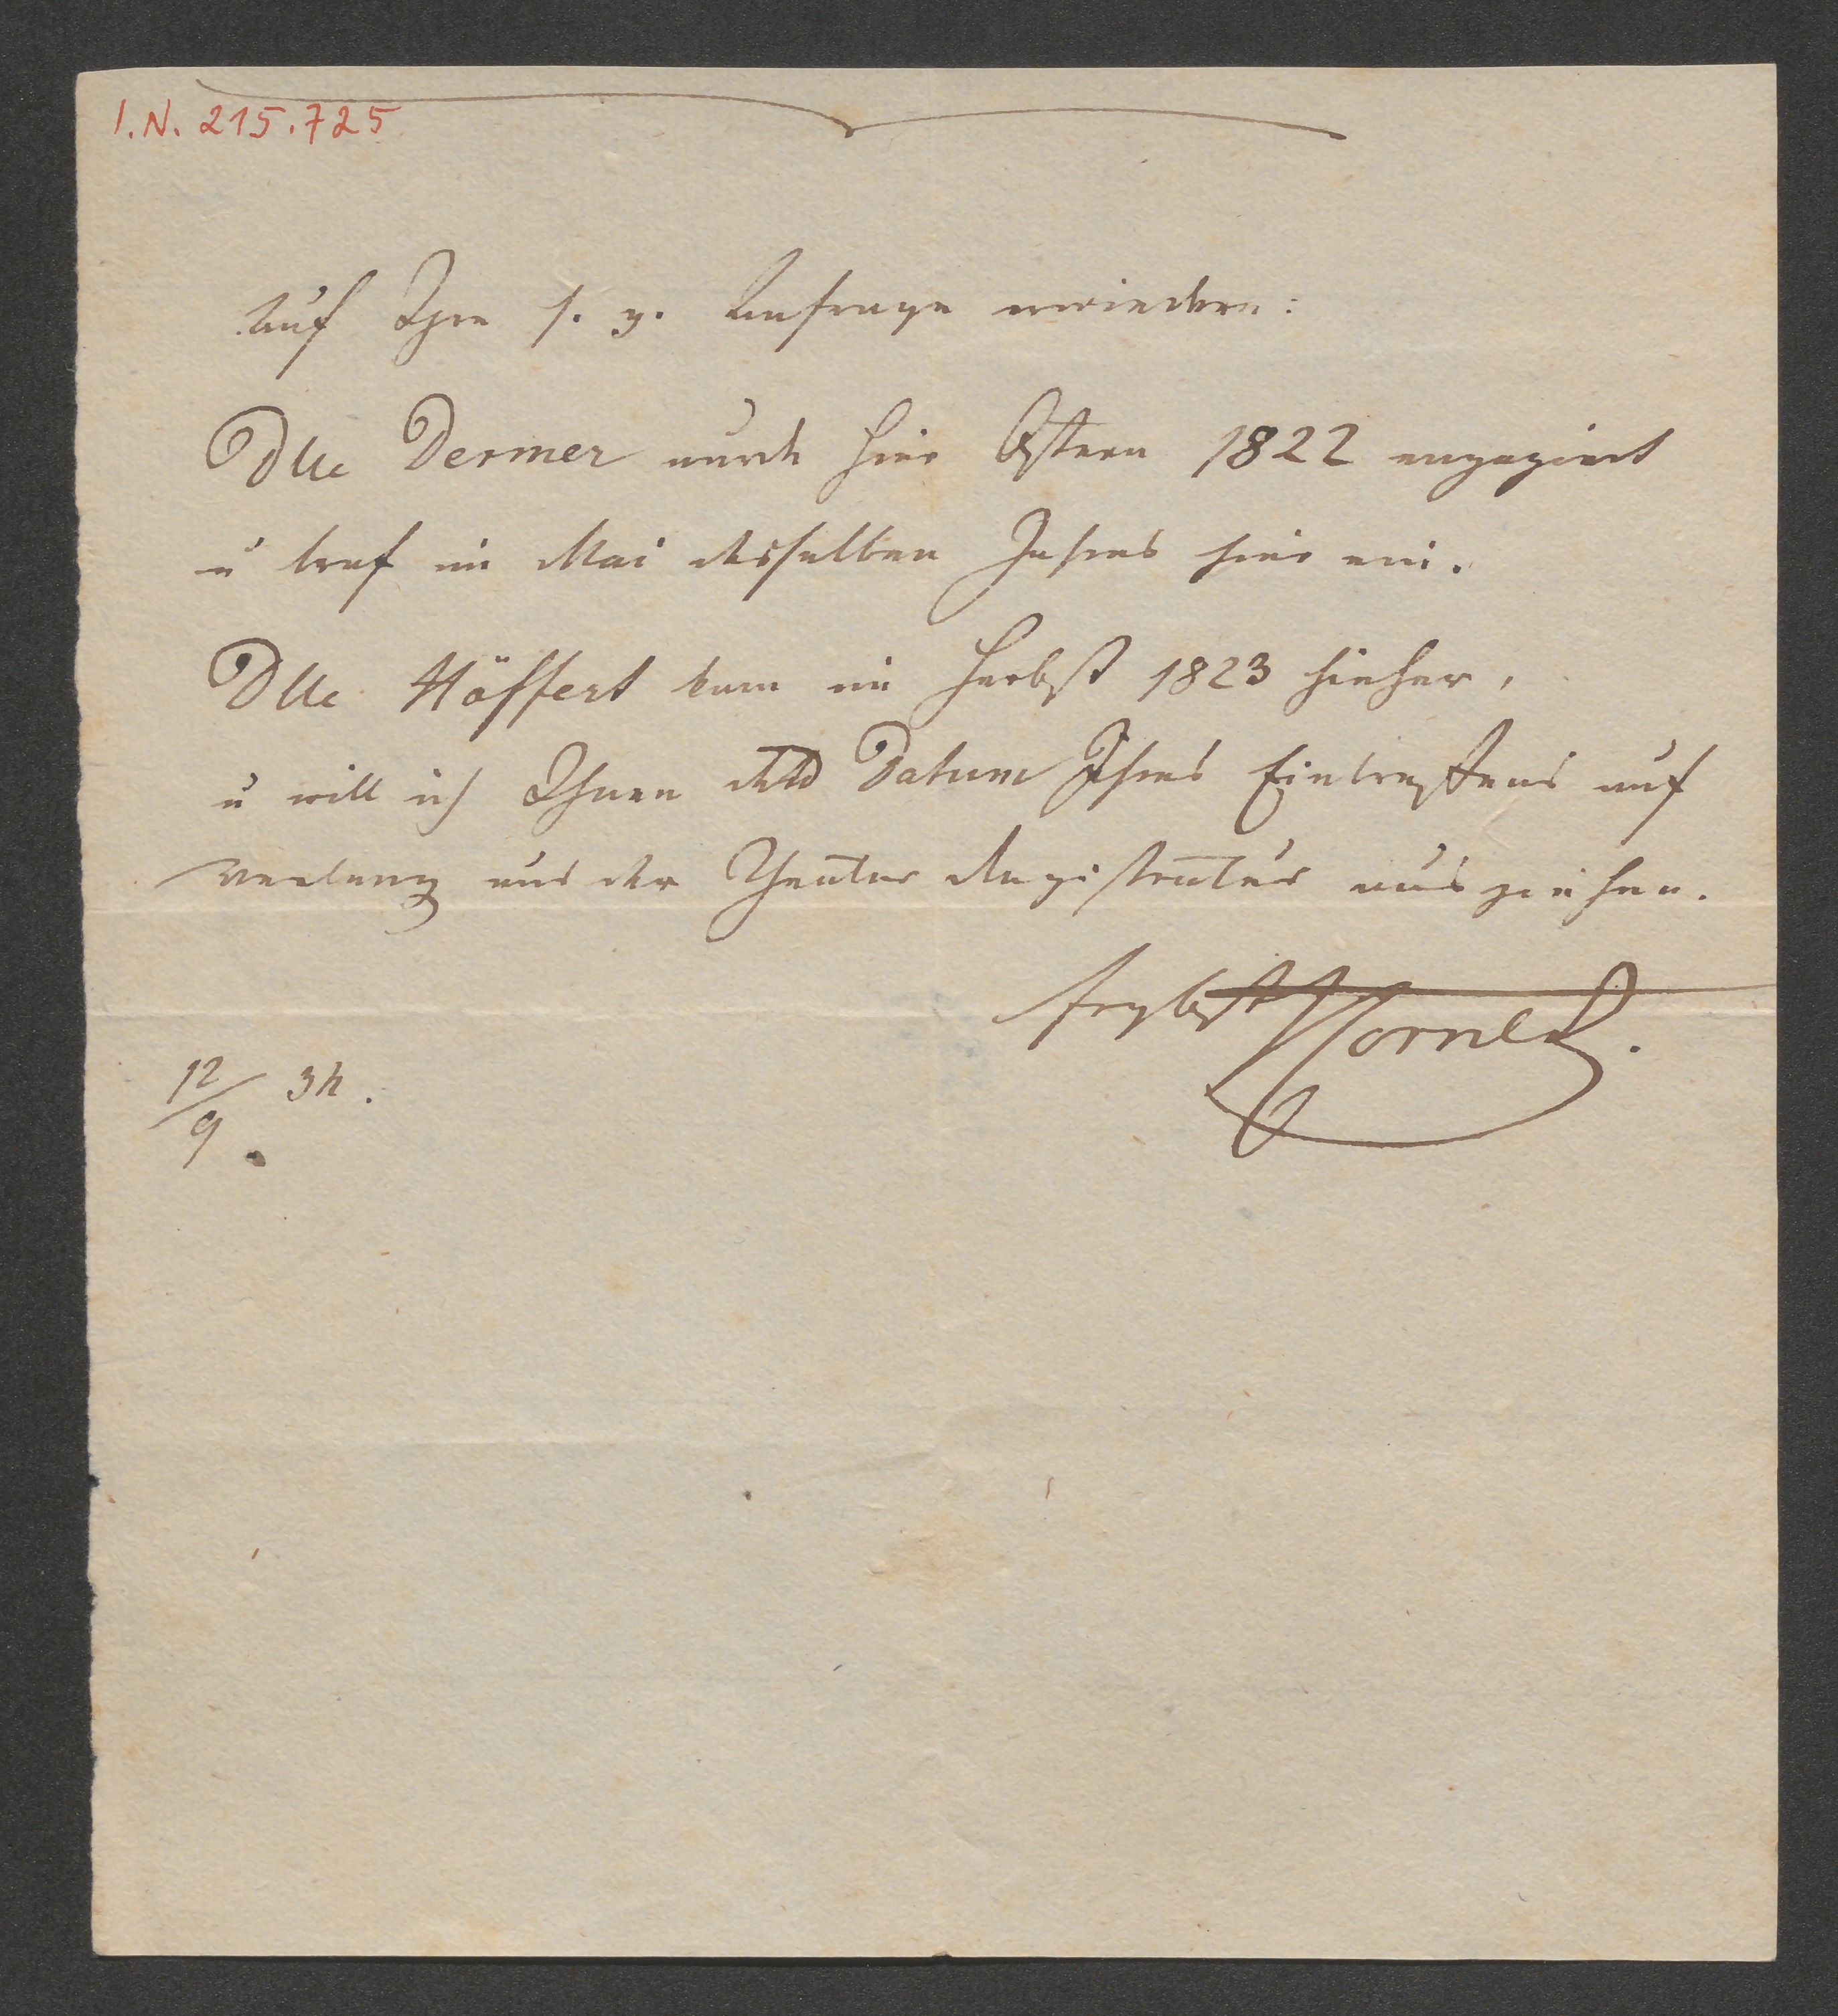 I.N. 215.725
Auf Ihre s. g. Anfrage erwiedere:
Dlle Dermer wurde hier Ostern 1822 engagirt
u traf im Mai desselben Jahres hier ein.
Dlle Höffert kam im Herbst 1823 hieher,
u will ich Ihnen das Datum Ihres Eintreffens auf
Verlang aus der Theater Registratur ausziehen.
Ergbst Cornet.
12/9 34.